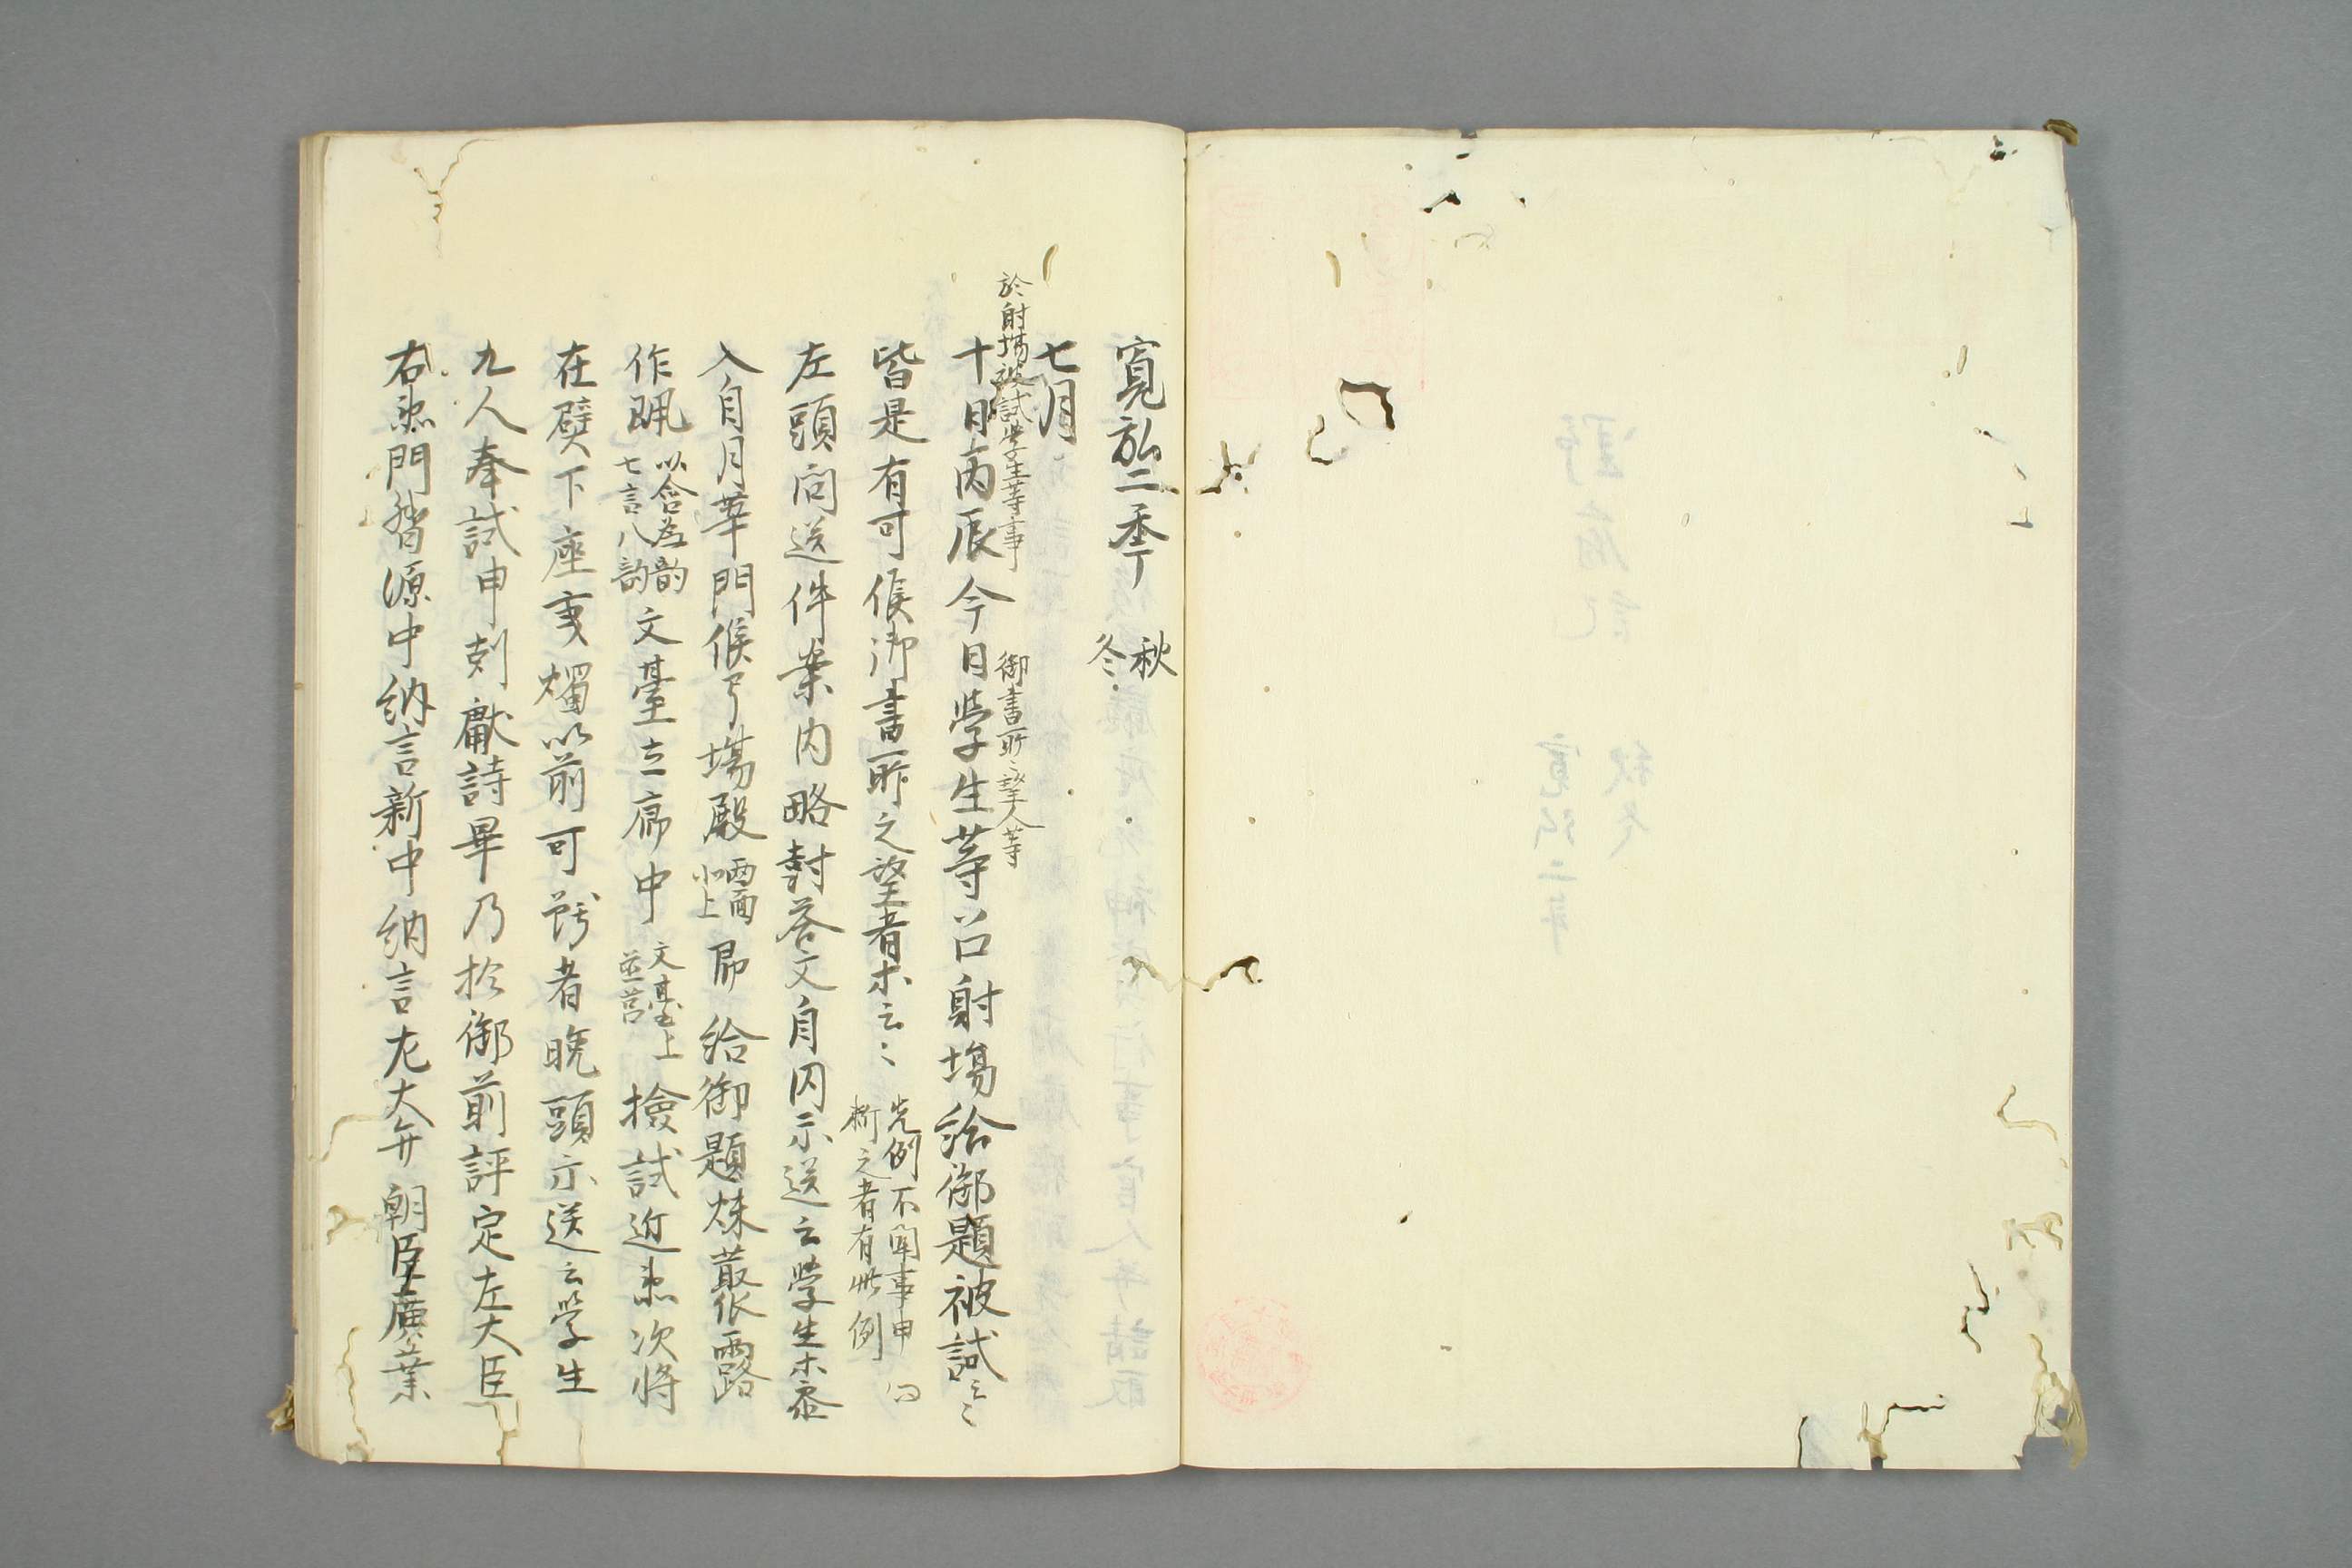 寛弘二季 秋冬
七月
於射場被試学生等事
御書所望人等
十日丙辰今日學生等召射場給御題被試云々
皆是有可候御書所之望者木云々 先例不聞事申
斯之者有此例
左頭問送件案内略封答文自内示送云學生木參
入自月華門候弓塲殿 西面北上 即給御題 叢露
作 以含為韵七言八韵 文臺立 中 文臺上並莒 撿試近 次將
在 下座 燭以前可 者晩頭示送云學生
九人奉試申剋獻詩畢乃於御前評定左大臣
右 門 源中納言新中納言左大弁朝臣廣業